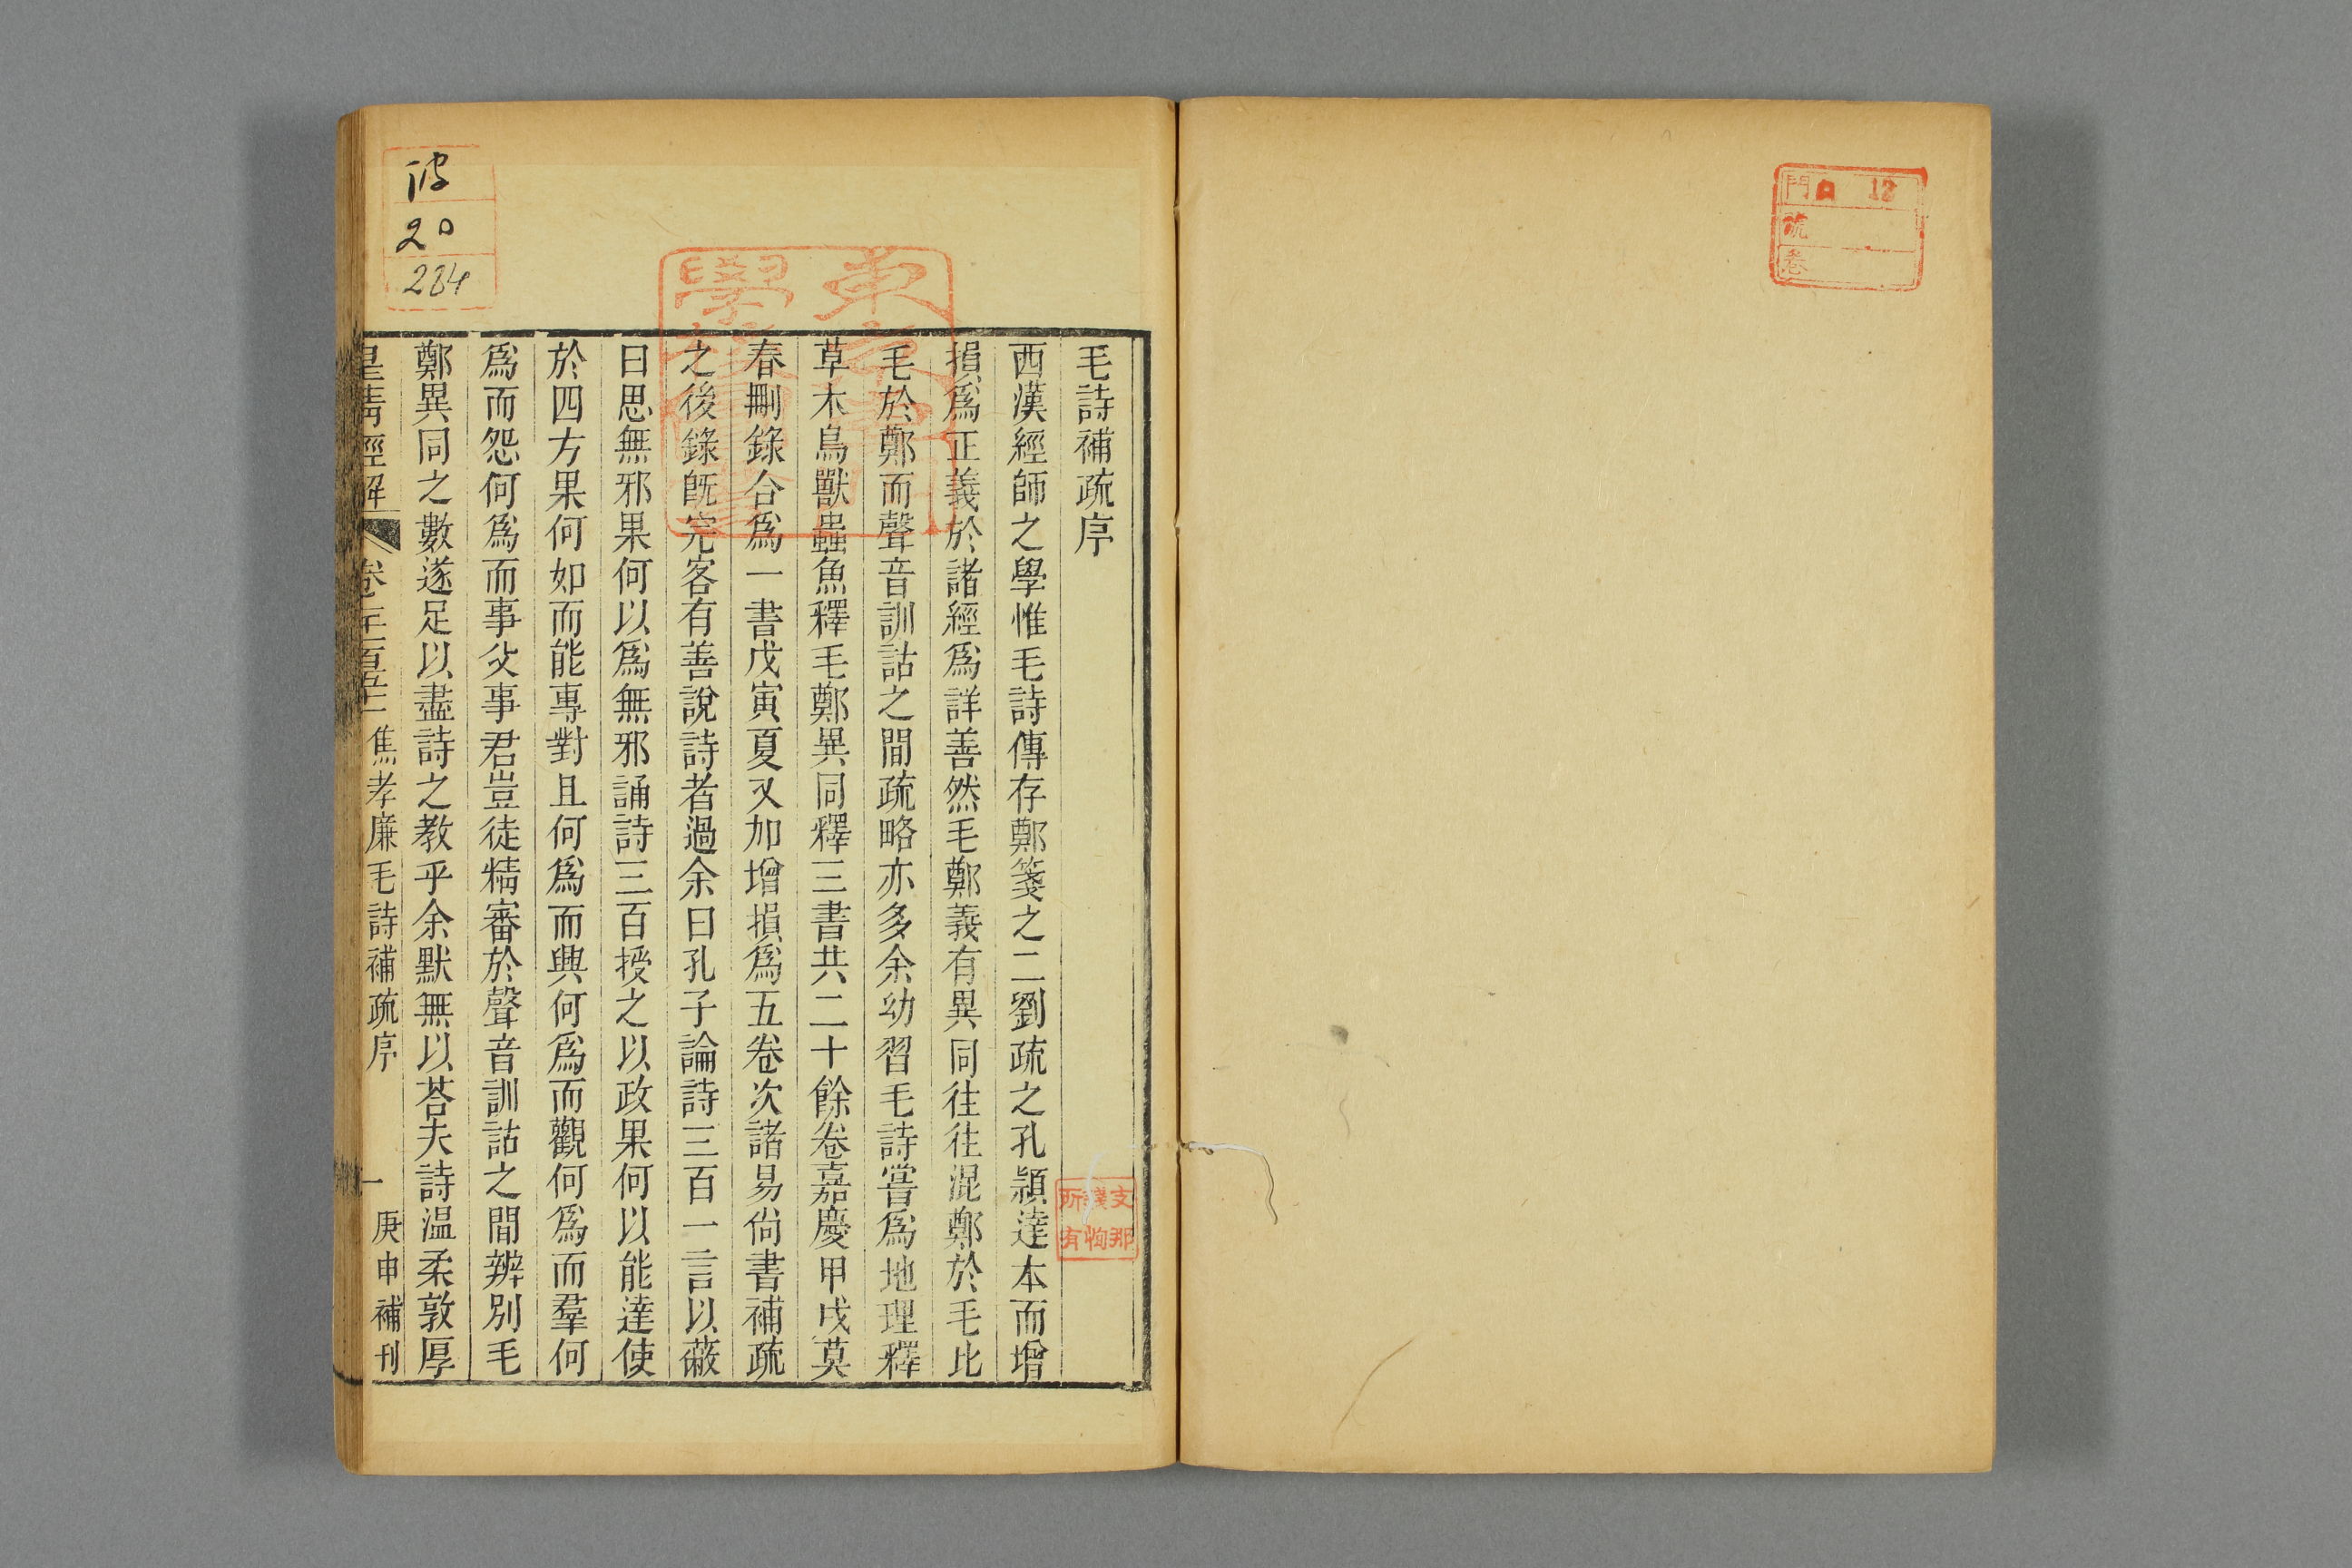 門 口 12
號
卷
毛詩補疏序
西漢經師之學惟毛詩傳存鄭箋之二劉疏之孔頴達本而增
損爲正義於諸經爲詳善然毛鄭義有異同往往混鄭於毛比
毛於鄭而聲音訓詁之間疏略亦多余幼習毛詩嘗爲地理釋
草木鳥獸蟲魚釋毛鄭異同釋三書共二十餘卷嘉慶甲戌莫
春刪錄合爲一書戊寅夏又加增損爲五卷次諸易尙書補疏
之後錄旣完客有善說詩者過余曰孔子論詩三百一言以蔽
曰思無邪果何以爲無邪誦詩三百授之以政果何以能達使
於四方果何如而能專對且何爲而興何爲而觀何爲而羣何
爲而怨何爲而事父事君豈徒精審於聲音訓詁之間辨別毛
鄭異同之數遂足以盡詩之敎乎余默無以荅夫詩温柔敦厚
皇淸經解 卷千一百五十一 焦孝廉毛詩補疏序 一 庚申補刊
支那
所有
20
284